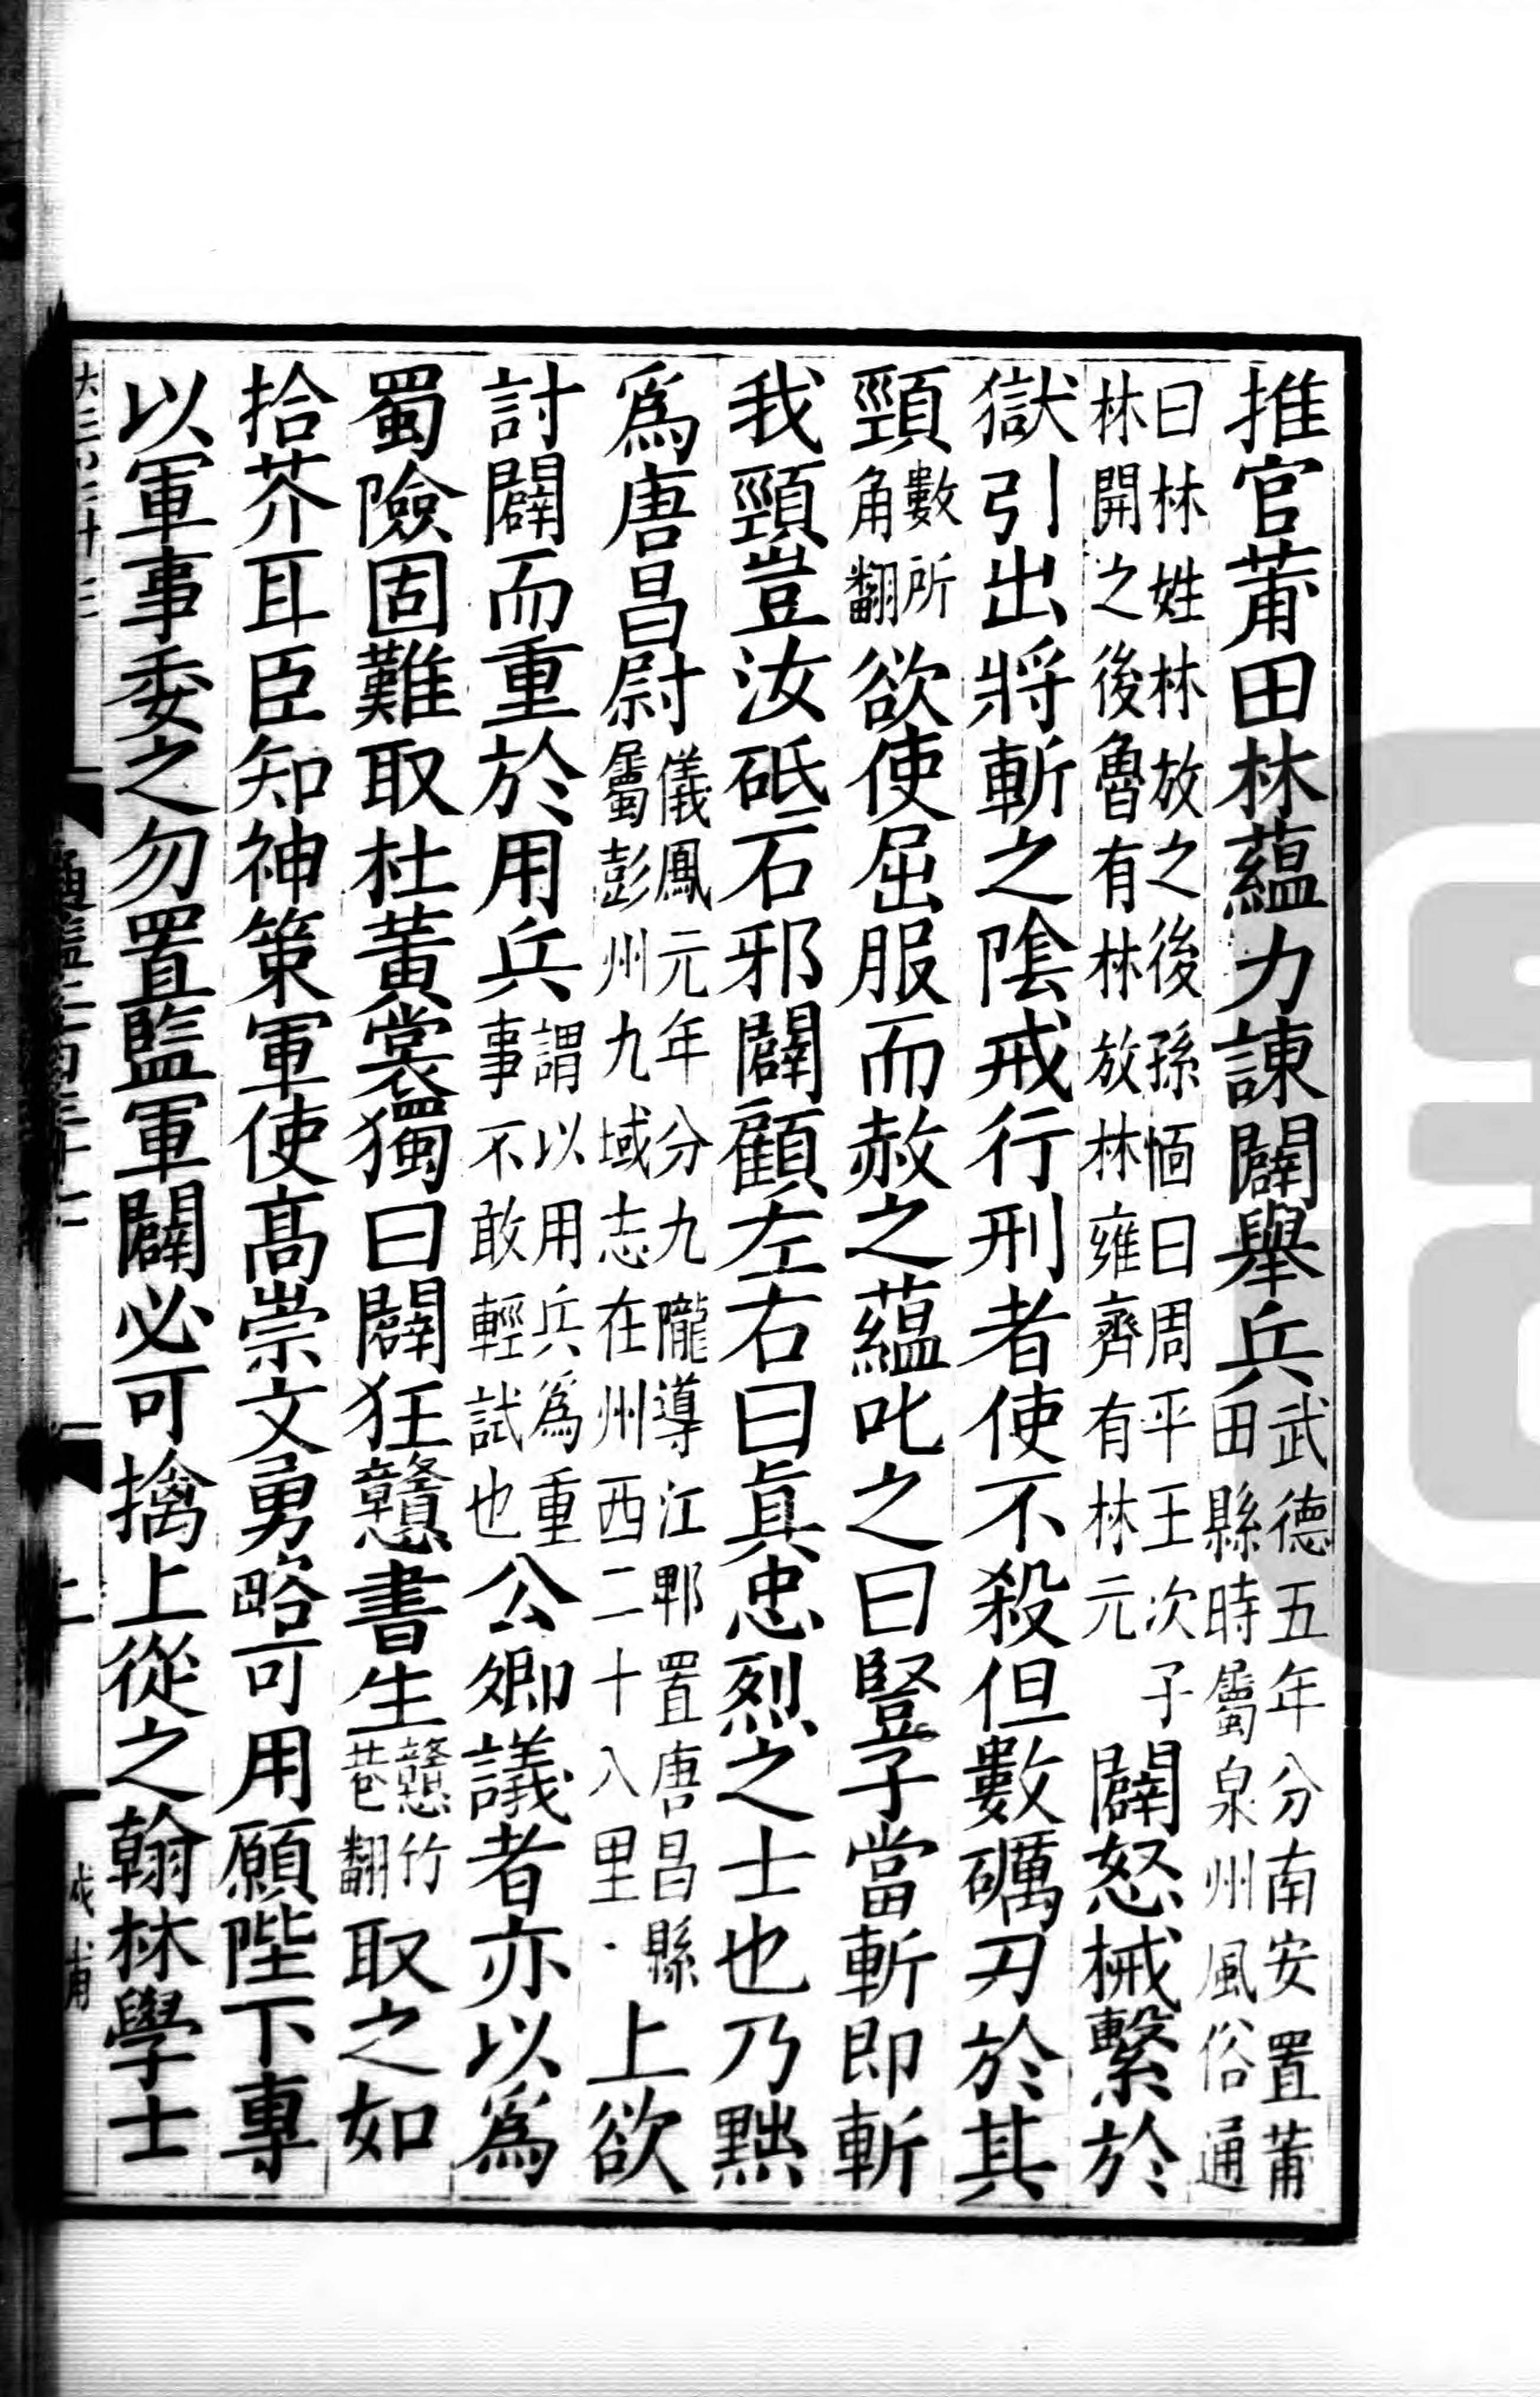 推官莆田林蘊力諫闢舉兵武德五年分南安置莆田縣時屬泉州風俗通
曰林姓林放之後孫愐曰周平王次子林開之後魯有林放林雍齊有林元闢怒械繫於
獄引出將斬之陰戒行刑者使不殺但數礪刃於其
頸數所角翻欲使屈服而赦之蘊叱之曰豎子當斬即斬
我頸豈汝砥石邪闢顧左右曰眞忠烈之士也乃黜
爲唐昌尉儀鳳元年分九隴導江郫置唐昌縣屬彭州九域志在州西二十八里上欲
討闢而重於用兵謂以用兵爲重事不敢輕試也公卿議者亦以爲
蜀險固難取杜黃裳獨曰闢狂戇書生戇竹巷翻取之如
拾芥耳臣知神策軍使高崇文勇略可用願陛下專
以軍事委之勿置監軍闢必可擒上從之翰林學士